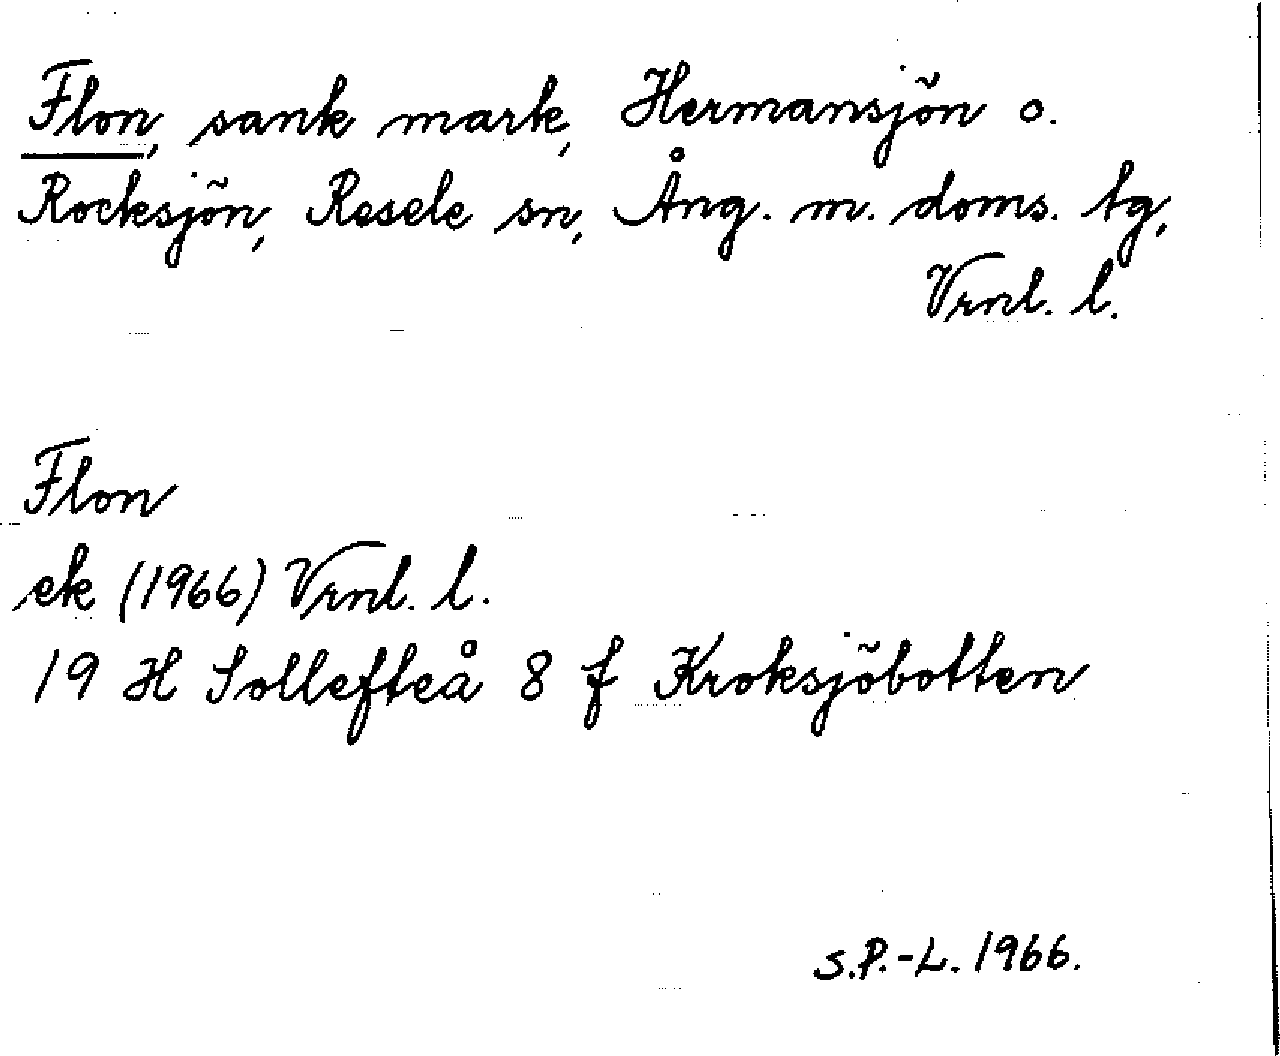 Flon, sank mark, Hermansjön o.
Rocksjön, Resele sn, Ång. m. doms. tg,
Vrnl. l.
Flon
ek (1966) Vrnl. l.
19 H Sollefteå 8 f Kroksjöbotten
S.P.-L. 1966.